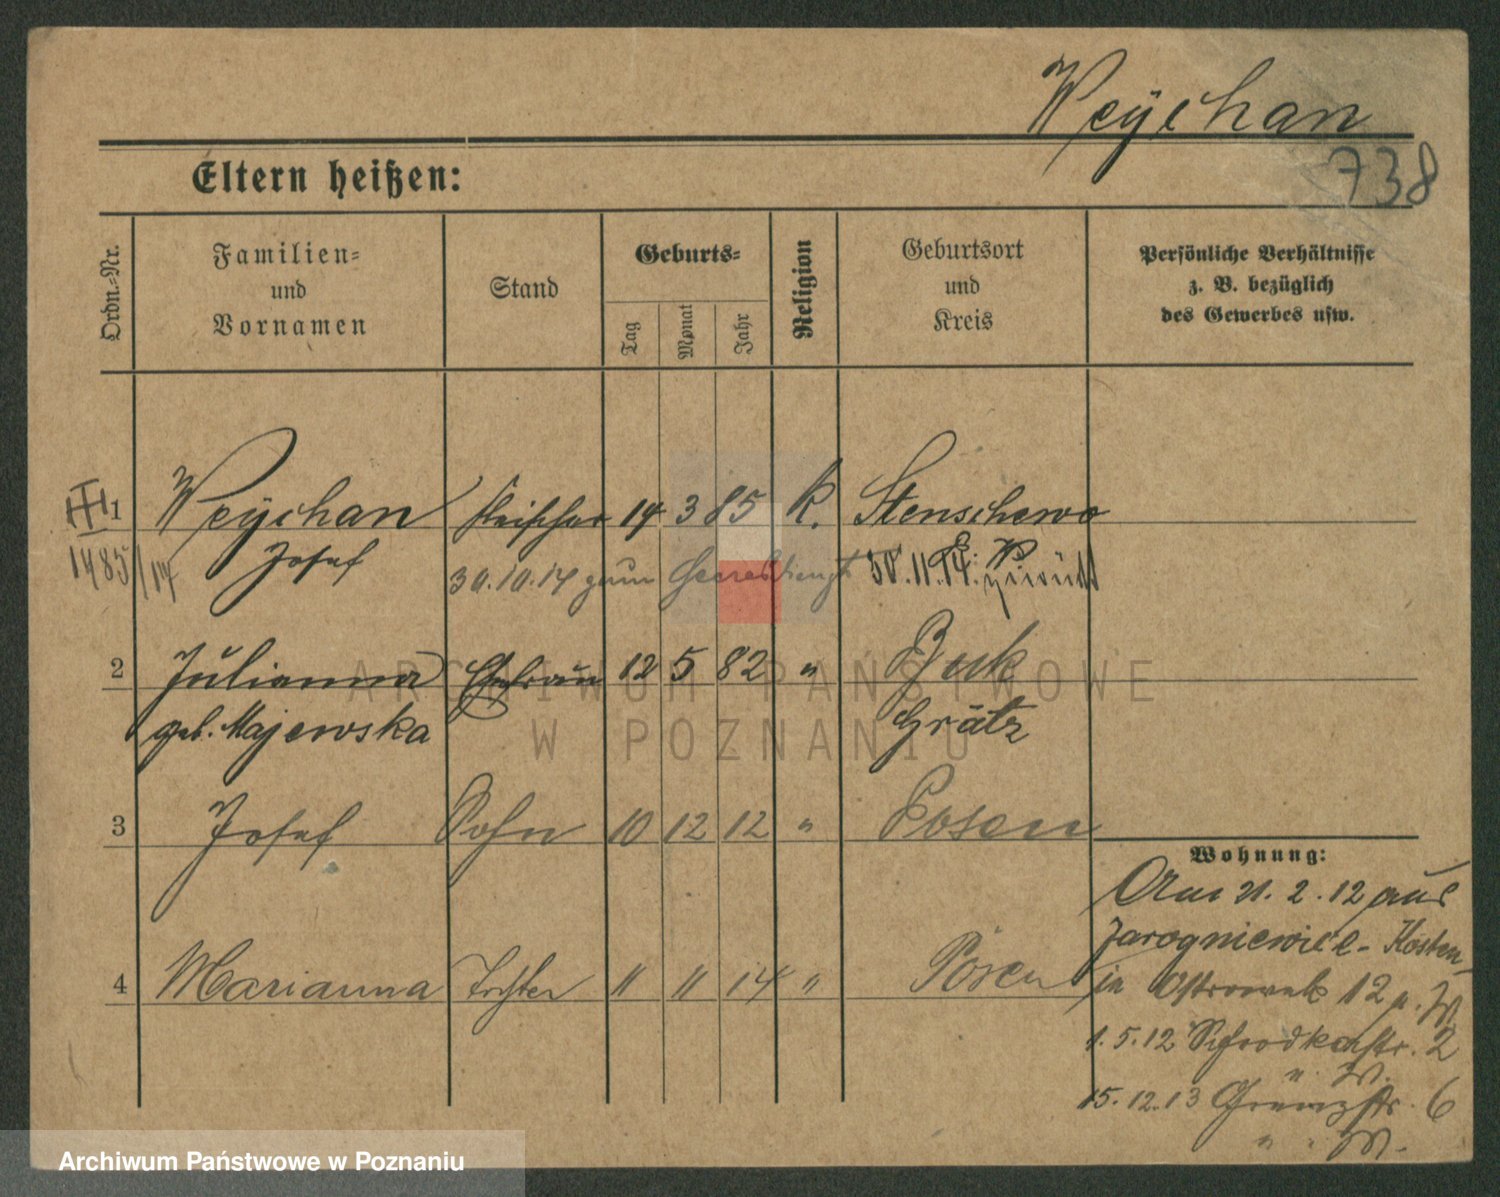 Weÿchan
738
Eltern heißen:
Ordn.-Nr.
Familien-
und
Vornamen
Stand
Geburts-
Tag
Monat
Jahr
Religion
Geburtsort
und
Kreis
Persönliche Verhältnisse
z. B. bezüglich
des Gewerbes usw.
1 Weÿchan Fleischer 14 3 85 K. Stenschewo
1485/14 Josef 30.10.14 zum Heeresdienst 30.11.14 zurück
2 Julianna Ehefrau 12 5 82 " Buk
geb. Majewska Grätz
3 Josef Sohn 10 12 12 " Posen
Wohnung:
Am 21.2.12 aus
Jarogniewice - Kosten
4 Marianna Tochter " " 14 " Posen
in Ostrowek 12 b. W.
1.5.12 Schrodkastr. 2
b. W.
15.12.13 Grenzstr. 6
" " W.
ARCHIWUM PAŃSTWOWE
W POZNANIU
Archiwum Państwowe w Poznaniu